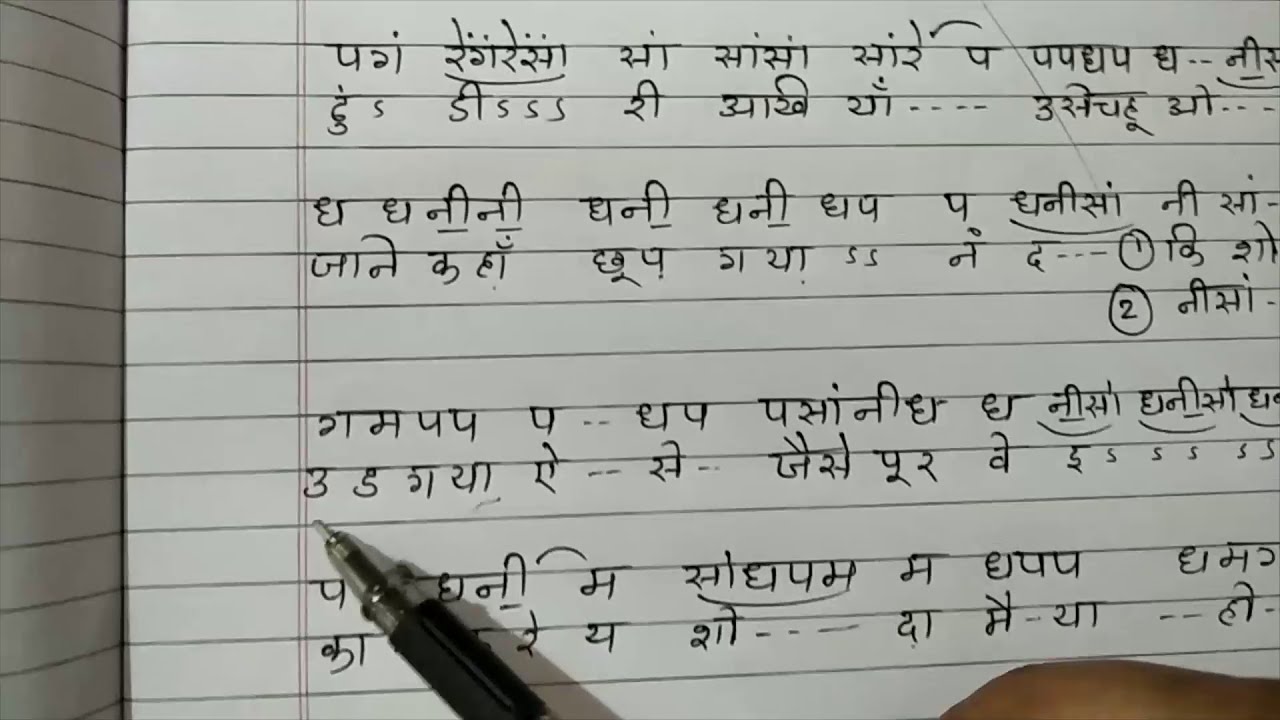 पगं रेंगंरेंसां सां सांसां सांरें प पपधप ध--
ढुंऽ डीऽऽऽ री आखि याँ---- उसेचहू ओ---
ध धनी॒नी॒ धनी॒ धनी॒ धप प धनीसां नी सां-
जाने कहाँ छूप गया ऽऽ नं द---① कि शो
② नीसां-
गमपप प -- धप पसांनीध ध नी॒सां धनी॒सां
उड गया ऐ -- से -- जैसे पूर वे इऽ ऽ ऽ ऽऽ
प धनी॒ म सांधपम म धपप धमग
का रे य शो---- दा मै-या --हो-